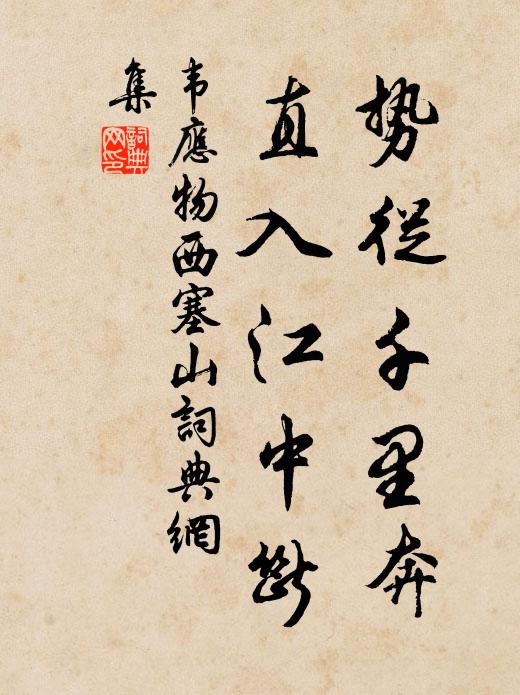 势從千里奔
直入江中斷
韦應物西塞山詞典網
集
詞典
网印